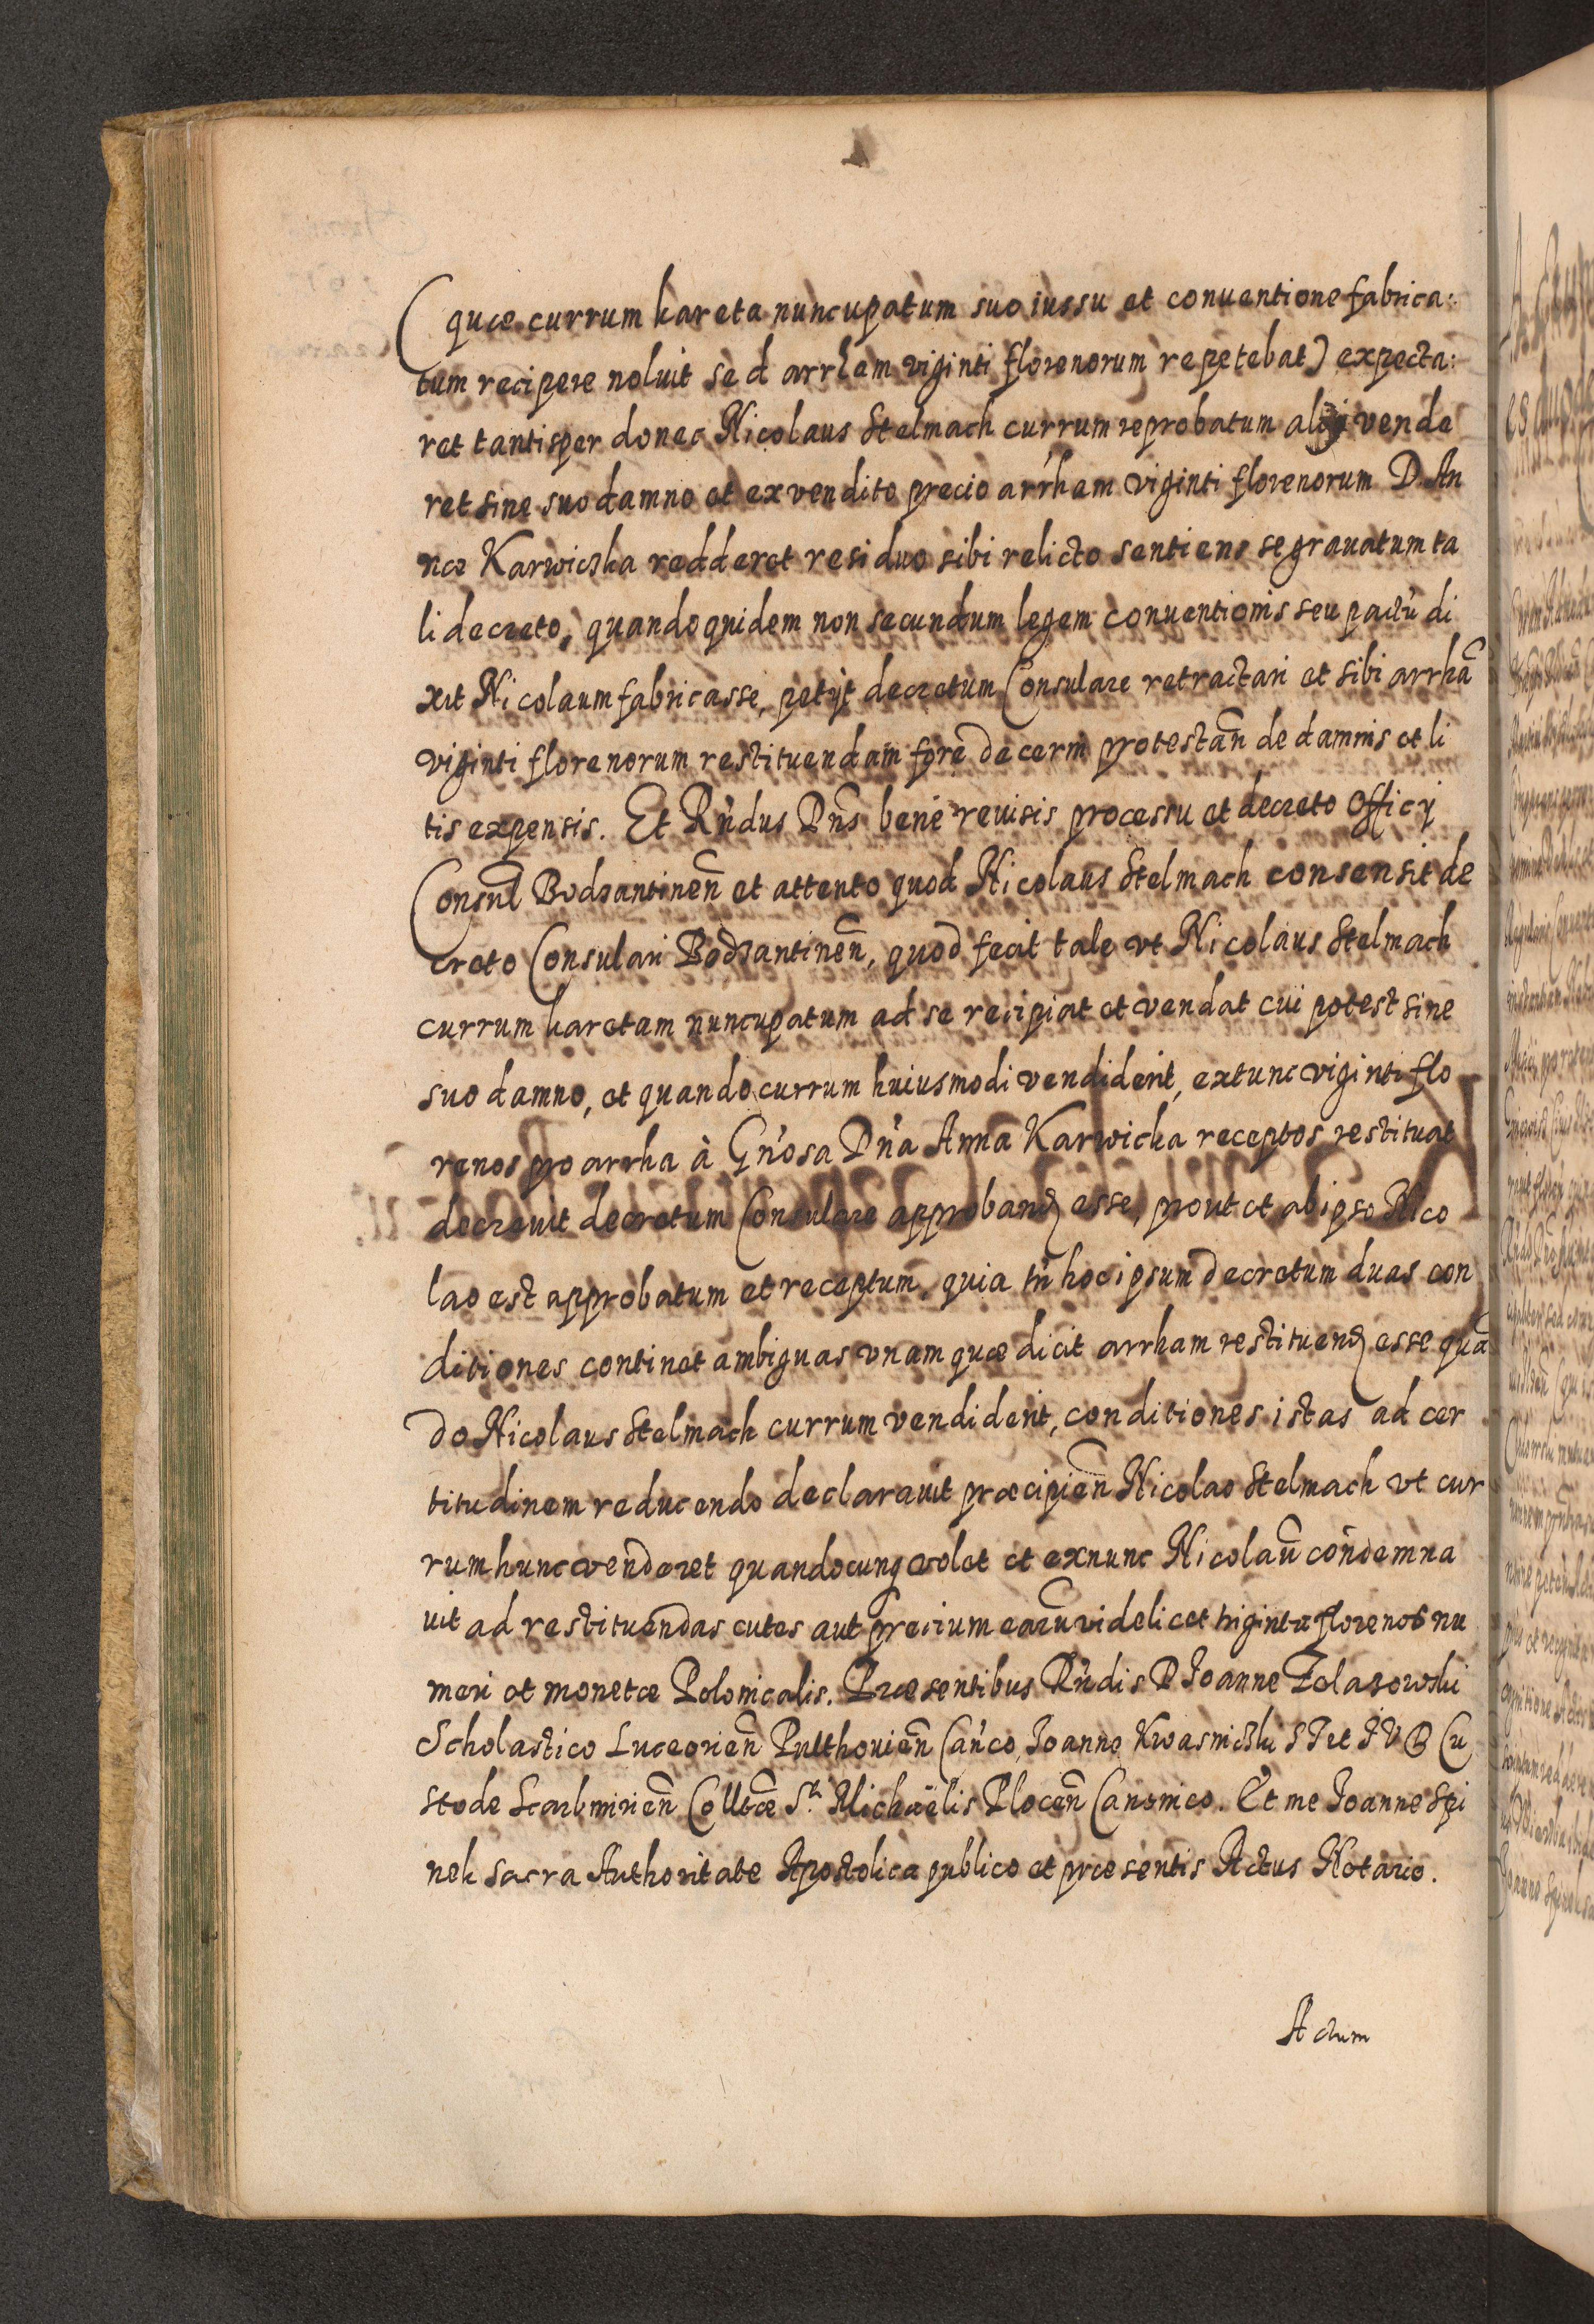 (quæ currum kareta nuncupatum suo iussu et conuentione fabrica:
tum recipere noluit sed arrham viginti florenorum repetebat) expecta:
ret tantisper donec Nicolaus Stelmach currum reprobatum vende
ret sine suo damno et ex vendito precio arrham viginti florenorum D. An
næ Karwiczka redderet residuo sibi relicto sentiens se grauatum ta
li decreto, quandoquidem non secundum legem conuentionis seu pactū di
xit Nicolaum fabricasse, petijt decretum Consulare retractari et sibi arrhā
viginti florenorum restituendam fore decerni protestan̄ de damnis et li
tis expensis. Et Rńdus Dn̄s bene reuisis processu et decreto Officij
Consul̄ Bodzantinen̄ et attento quod Nicolaus Stelmach consensit de
creto Consulari Bodzantinen̄, quod fecit tale vt Nicolaus Stelmach
currum karetam nuncupatum ad se recipiat et vendat cui potest sine
suo damno, et quando currum huiusmodi vendiderit, extunc viginti flo
renos pro arrha à Gńosa Dńa Anna Karwicka receptos restituat
decreuit decretum Consulare approband esse, prout et ab ipso Nico
lao est approbatum et receptum, quia tń hoc ipsum decretum duas con
ditiones continet ambiguas vnam quæ dicit arrham restituend esse quā
do Nicolaus Stelmach currum vendiderit, conditiones istas ad cer
titudinem reducendo declarauit præcipien̄ Nicolao Stelmach vt cur
rum hunc venderet quandocunq volet et exnunc Nicolaū condemna
uit ad restituendas cutes aut precium earū videlicet triginta florenos nu
meri et monetæ Polonicalis. Præsentibus Rńdis D Joanne Zelasowski
Scholastico Luceorien̄ Pulthouien̄ Cańco, Joanne Kwasniczki STet JVD Cu
stode Scarbmirien̄ Colltæ St. Michaëlis Plocen̄ Canonico. Et me Joanne Spi
nek Sacra Authoritate Apostolica publico et præsentis Actus Notario.
Actum